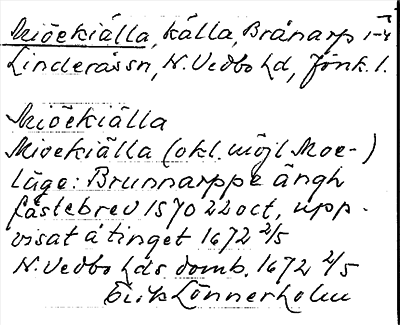 Miöekiälla, källa, Brånarp 1-4
Linderås sn, N. Vedbo hd, Jönk. l.
Miöekiälla
Mioekiälla (okl. möjl Moe-)
läge: Brunnarppe ängh
fästebrev 1570 22 oct, upp-
visat å tinget 1672 2/5
N. Vedbo hds domb. 1672 2/5
Erik Lönnerholm